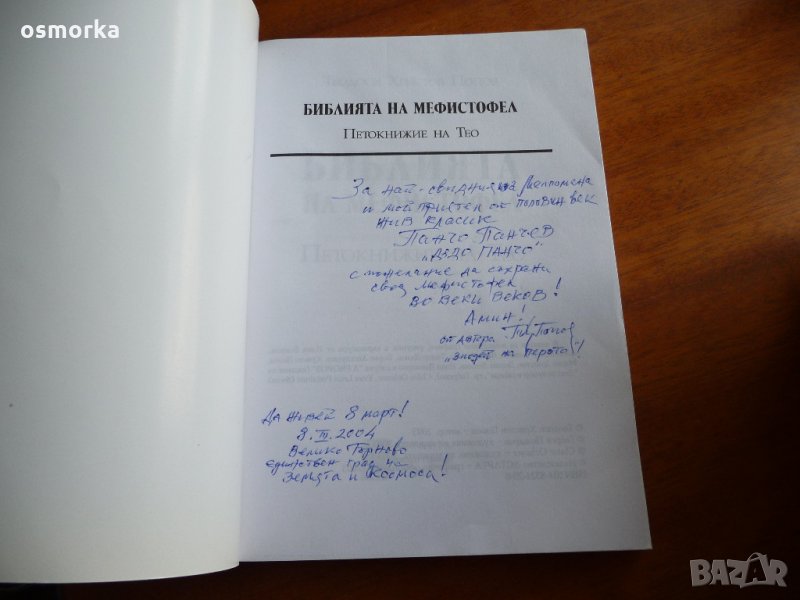 osmorka
БИБЛИЯТА НА МЕФИСТОФЕЛ
ПЕТОКНИЖИЕ НА ТЕО
За най-свидния на Мелпомена
и мой приятел от половин век
жив класик
Панчо Панчев
"Дядо Панчо"
с пожелание да съхрани
своя Мефистофел
во веки веков!
Амин!
от автора
на перото"!
Да живей 8 март!
8.III.2004
Велико Търново
единствен град на
Земята и Космоса!
BAZAR
bg